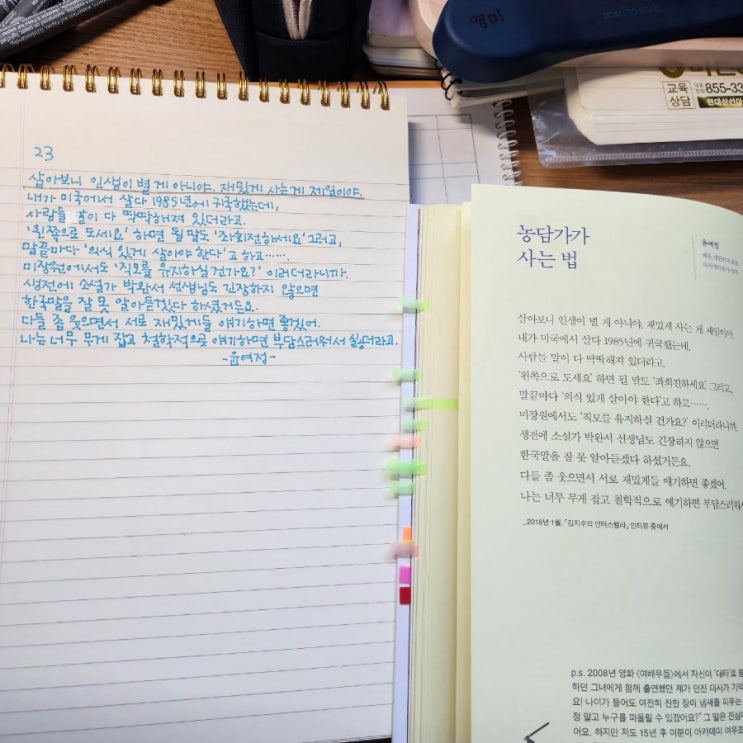 영미
교육
상담
855-33
23
살아보니 인생이 별 게 아니야. 재밌게 사는게 제일이야.
내가 미국에서 살다 1985년에 귀국했는데,
사람들 말이 다 딱딱해져 있더라고.
'왼쪽으로 도세요' 하면 될 말도 '좌회전하세요' 그러고,
말끝마다 '의식 있게 살아야 한다'고 하고…….
미장원에서도 '직모를 유지하실건가요?' 이러더라니까.
생전에 소설가 박완서 선생님도 긴장하지 않으면
한국말을 잘 못 알아듣겠다 하셨거든요.
다들 좀 웃으면서 서로 재밌게들 얘기하면 좋겠어.
나는 너무 무게 잡고 철학적으로 얘기하면 부담스러워서 싫더라고.
-윤여정-
농담가가
사는 법
윤여정
살아보니 인생이 별 게 아니야. 재밌게 사는 게 제일이야.
내가 미국에서 살다 1985년에 귀국했는데,
사람들 말이 다 딱딱해져 있더라고.
'왼쪽으로 도세요' 하면 될 말도 '좌회전하세요' 그러고,
말끝마다 '의식 있게 살아야 한다'고 하고…….
미장원에서도 '직모를 유지하실 건가요?' 이러더라니까.
생전에 소설가 박완서 선생님도 긴장하지 않으면
한국말을 잘 못 알아듣겠다 하셨거든요.
다들 좀 웃으면서 서로 재밌게들 얘기하면 좋겠어.
나는 너무 무게 잡고 철학적으로 얘기하면 부담스러워서
_2018년 1월, 「김지수의 인터스텔라」 인터뷰 중에서
p.s. 2008년 영화 〈여배우들〉에서 자신이 '대타'로
하던 그녀에게 함께 출연했던 제가 던진 대사가
요! 나이가 들어도 여전히 진한 장미 냄새를 피우는
정 말고 누구를 떠올릴 수 있겠어요?" 그 말은
어요. 하지만 저도 15년 후 이분이 아카데미